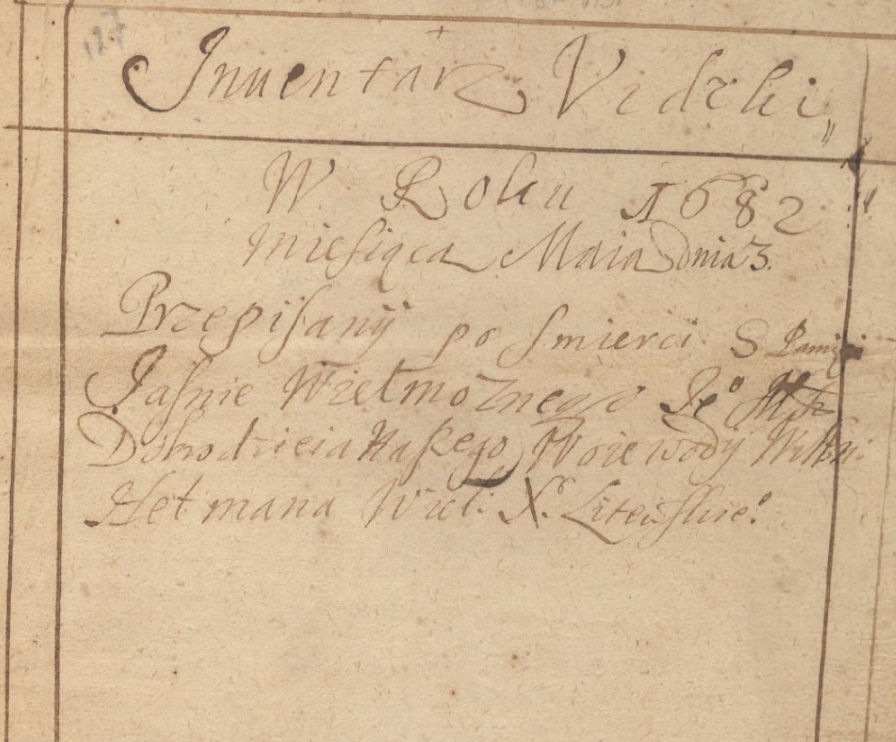 127
Inuentarz Vidzki
W Roku 1682
Miesiąca Maia Dnia 3.
Przepisanÿ po Smierci S Pamięci
Jaśnie Wielmożnego Je⁰
Dobrodzieia Naszego Woiewody Wileń:
Hetmana Wiel: X. Litewskie⁰: